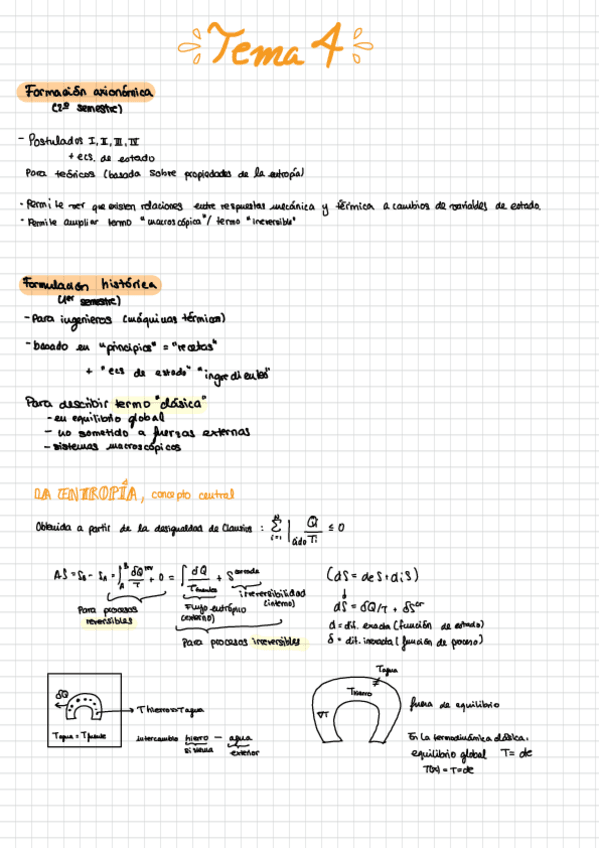 Tema 4
Formación axionómica
(2º semestre)
- Postulados I, II, III, IV
+ ecs. de estado
Para teóricos (basada sobre propiedades de la entropía)
- Permite ver que existen relaciones entre respuestas mecánica y térmica a cambios de variables de estado.
- Permite ampliar termo "macroscópica"/ termo "irreversible"
Formulación histórica
(1er semestre)
- Para ingenieros (máquinas térmicas)
- basado en "principios" = "recetas"
+ "ecs de estado" "ingredientes"
Para describir termo "clásica"
- en equilibrio global
- no sometido a fuerzas externas
- sistemas macroscópicos
LA ENTROPÍA, concepto central
Obtenida a partir de la desigualdad de Clausius : ∑ᵢ₌₁ᴺ | ciclo Qi/Ti ≤ 0
ΔS = S_B - S_A = ∫_A^B δQ^rev/T + 0 = ∫ δQ/T_fuente + S^creada (dS = deS + diS)
Para procesos reversibles
Flujo entrópico (externo)
irreversibilidad (interno)
Para procesos irreversibles
dS = δQ/T + δS^cr
d = dif. exacta (función de estado)
δ = dif. inexacta (función de proceso)
δQ
T hierro > T agua
Tagua = Tfuente
intercambio hierro - agua
sistema exterior
Tagua
≠
Thierro
∇T
fuera de equilibrio
En la termodinámica clásica.
equilibrio global T = cte
T(x) = T = cte